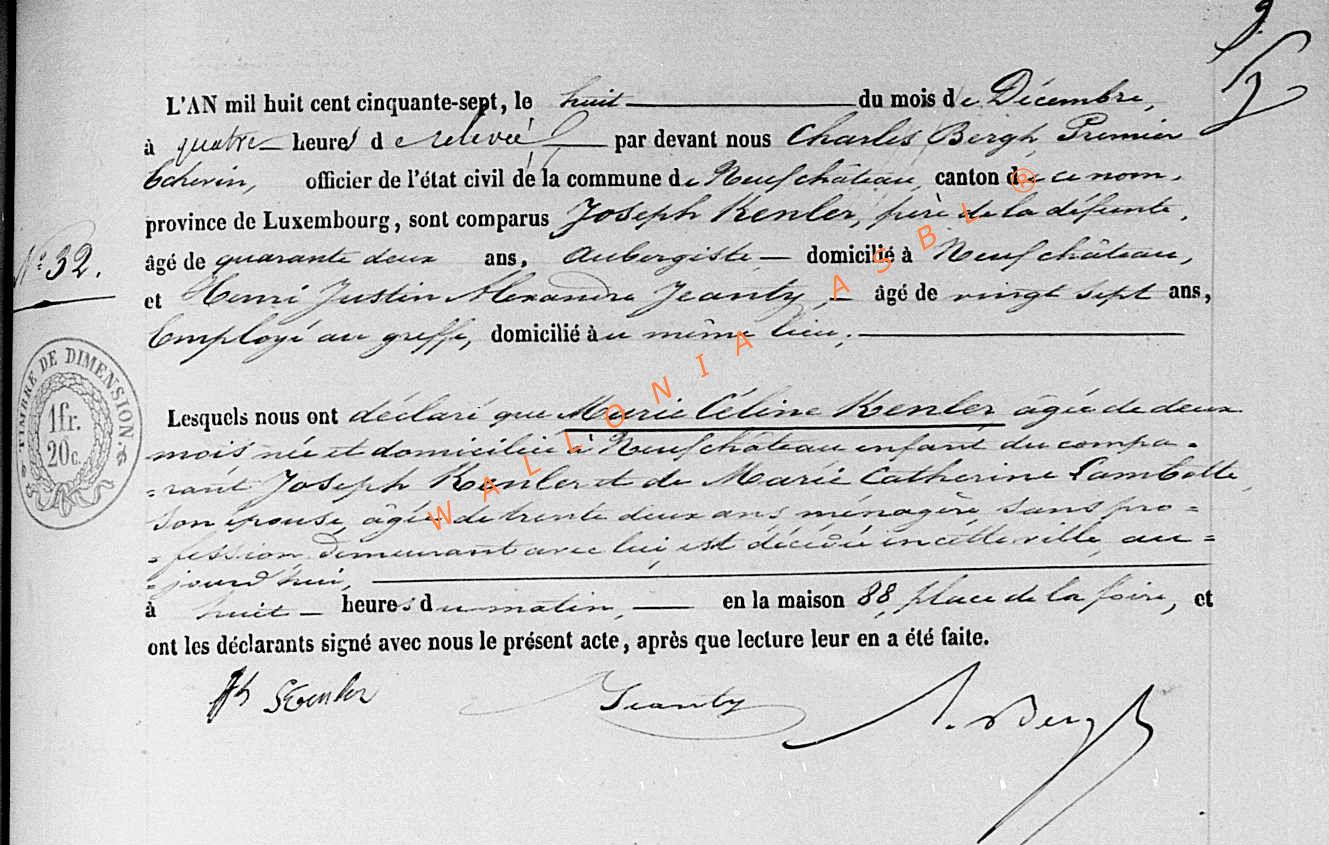 L'AN mil huit cent cinquante-sept, le huit du mois de Décembre,
à quatre heures de relevée par devant nous Charles Bergh, Premier
Echevin, officier de l'état civil de la commune de Neufchâteau, canton de ce nom,
province de Luxembourg, sont comparus Joseph Kenler, père de la défunte,
N° 32.
âgé de quarante deux ans, Aubergiste domicilié à Neufchâteau,
et Henri Justin Alexandre Jeanty, âgé de vingt sept ans,
Employé au greffe, domicilié au même lieu,
TIMBRE DE DIMENSION.
1 fr.
20 c.
Lesquels nous ont déclaré que Marie Céline Kenler, âgée de deux
mois née et domiciliée à Neufchâteau enfant du compa-
-rant Joseph Kenler et de Marie Catherine Lambotte,
son épouse, âgée de trente deux ans, ménagère sans pro=
=fession, demeurant avec lui, est décédée en cette ville, au=
=jourd'hui,
à huit heures du matin, en la maison 88, place de la foire, et
ont les déclarants signé avec nous le présent acte, après que lecture leur en a été faite.
Kenler Jeanty Bergh
WALLONIA ASBL ®